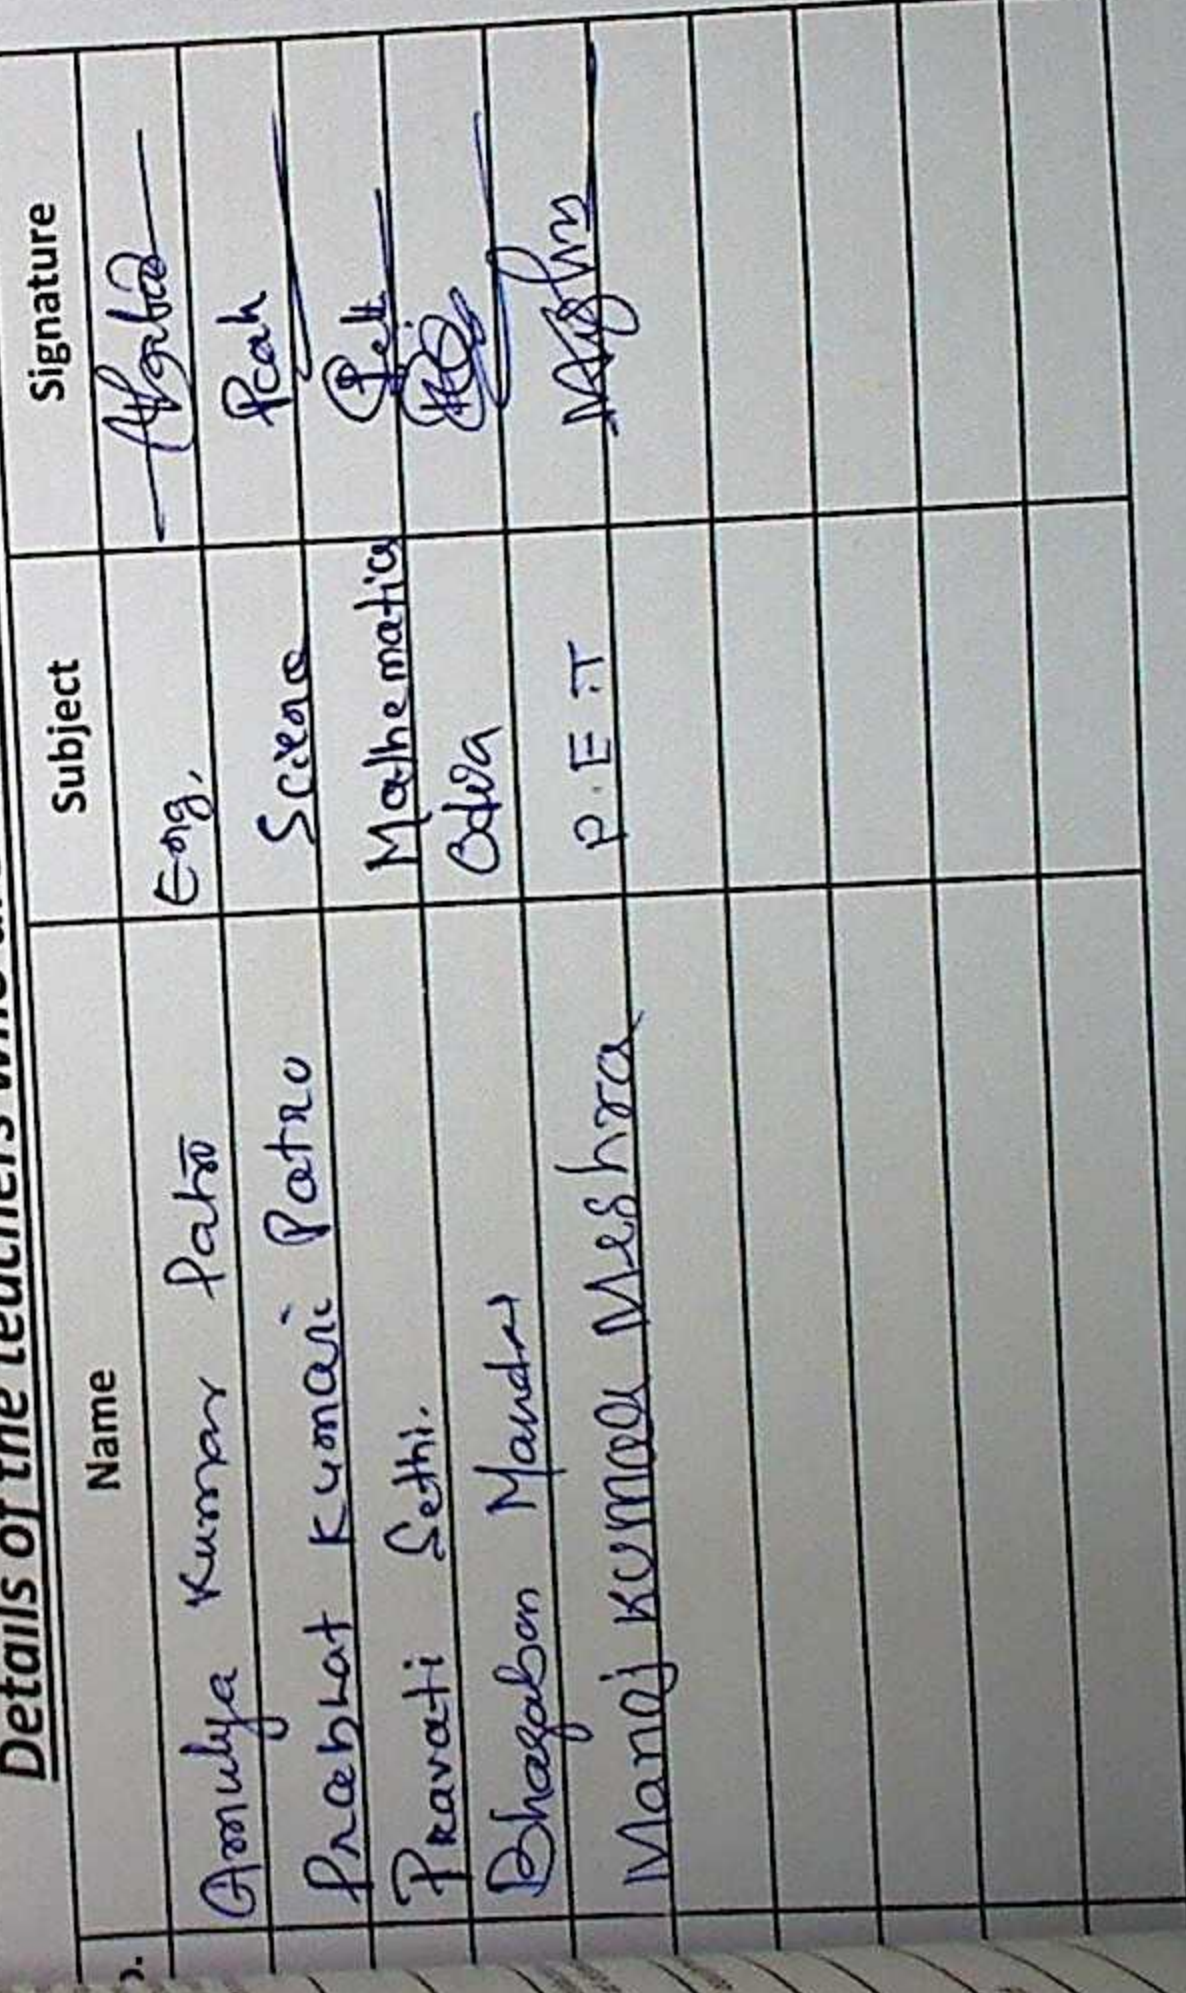 Details of the teachers who
Name Subject Signature
Amulya Kumar Patro Eng.
Prabhat Kumari Patro Science
Pravati Sethi. Mathematics
Bhagaban Odia
Manoj Kumar Meshra P.E.T